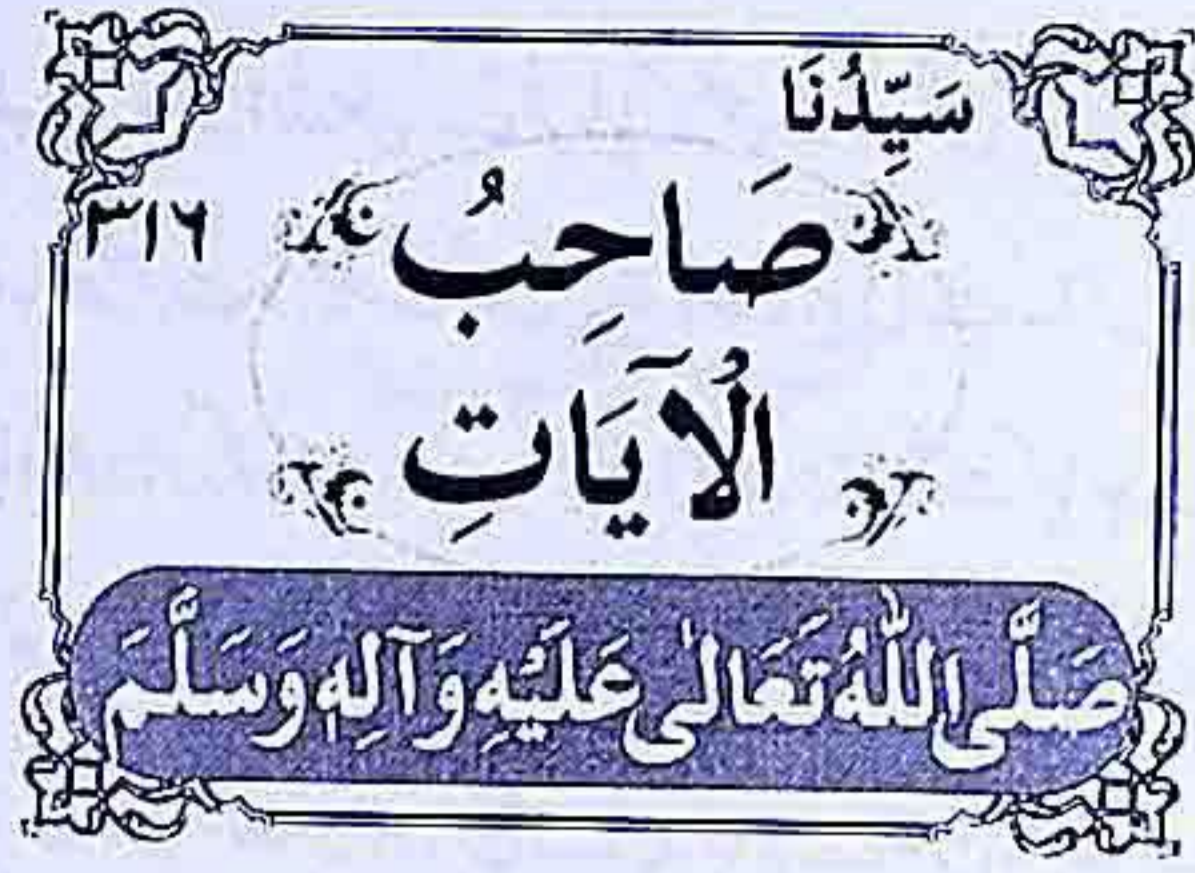 سَيِّدُنَا
٣١٦
صَاحِبُ
الْآيَاتِ
صَلَّى اللّٰهُ تَعَالٰى عَلَيْهِ وَآلِهٖ وَسَلَّمَ